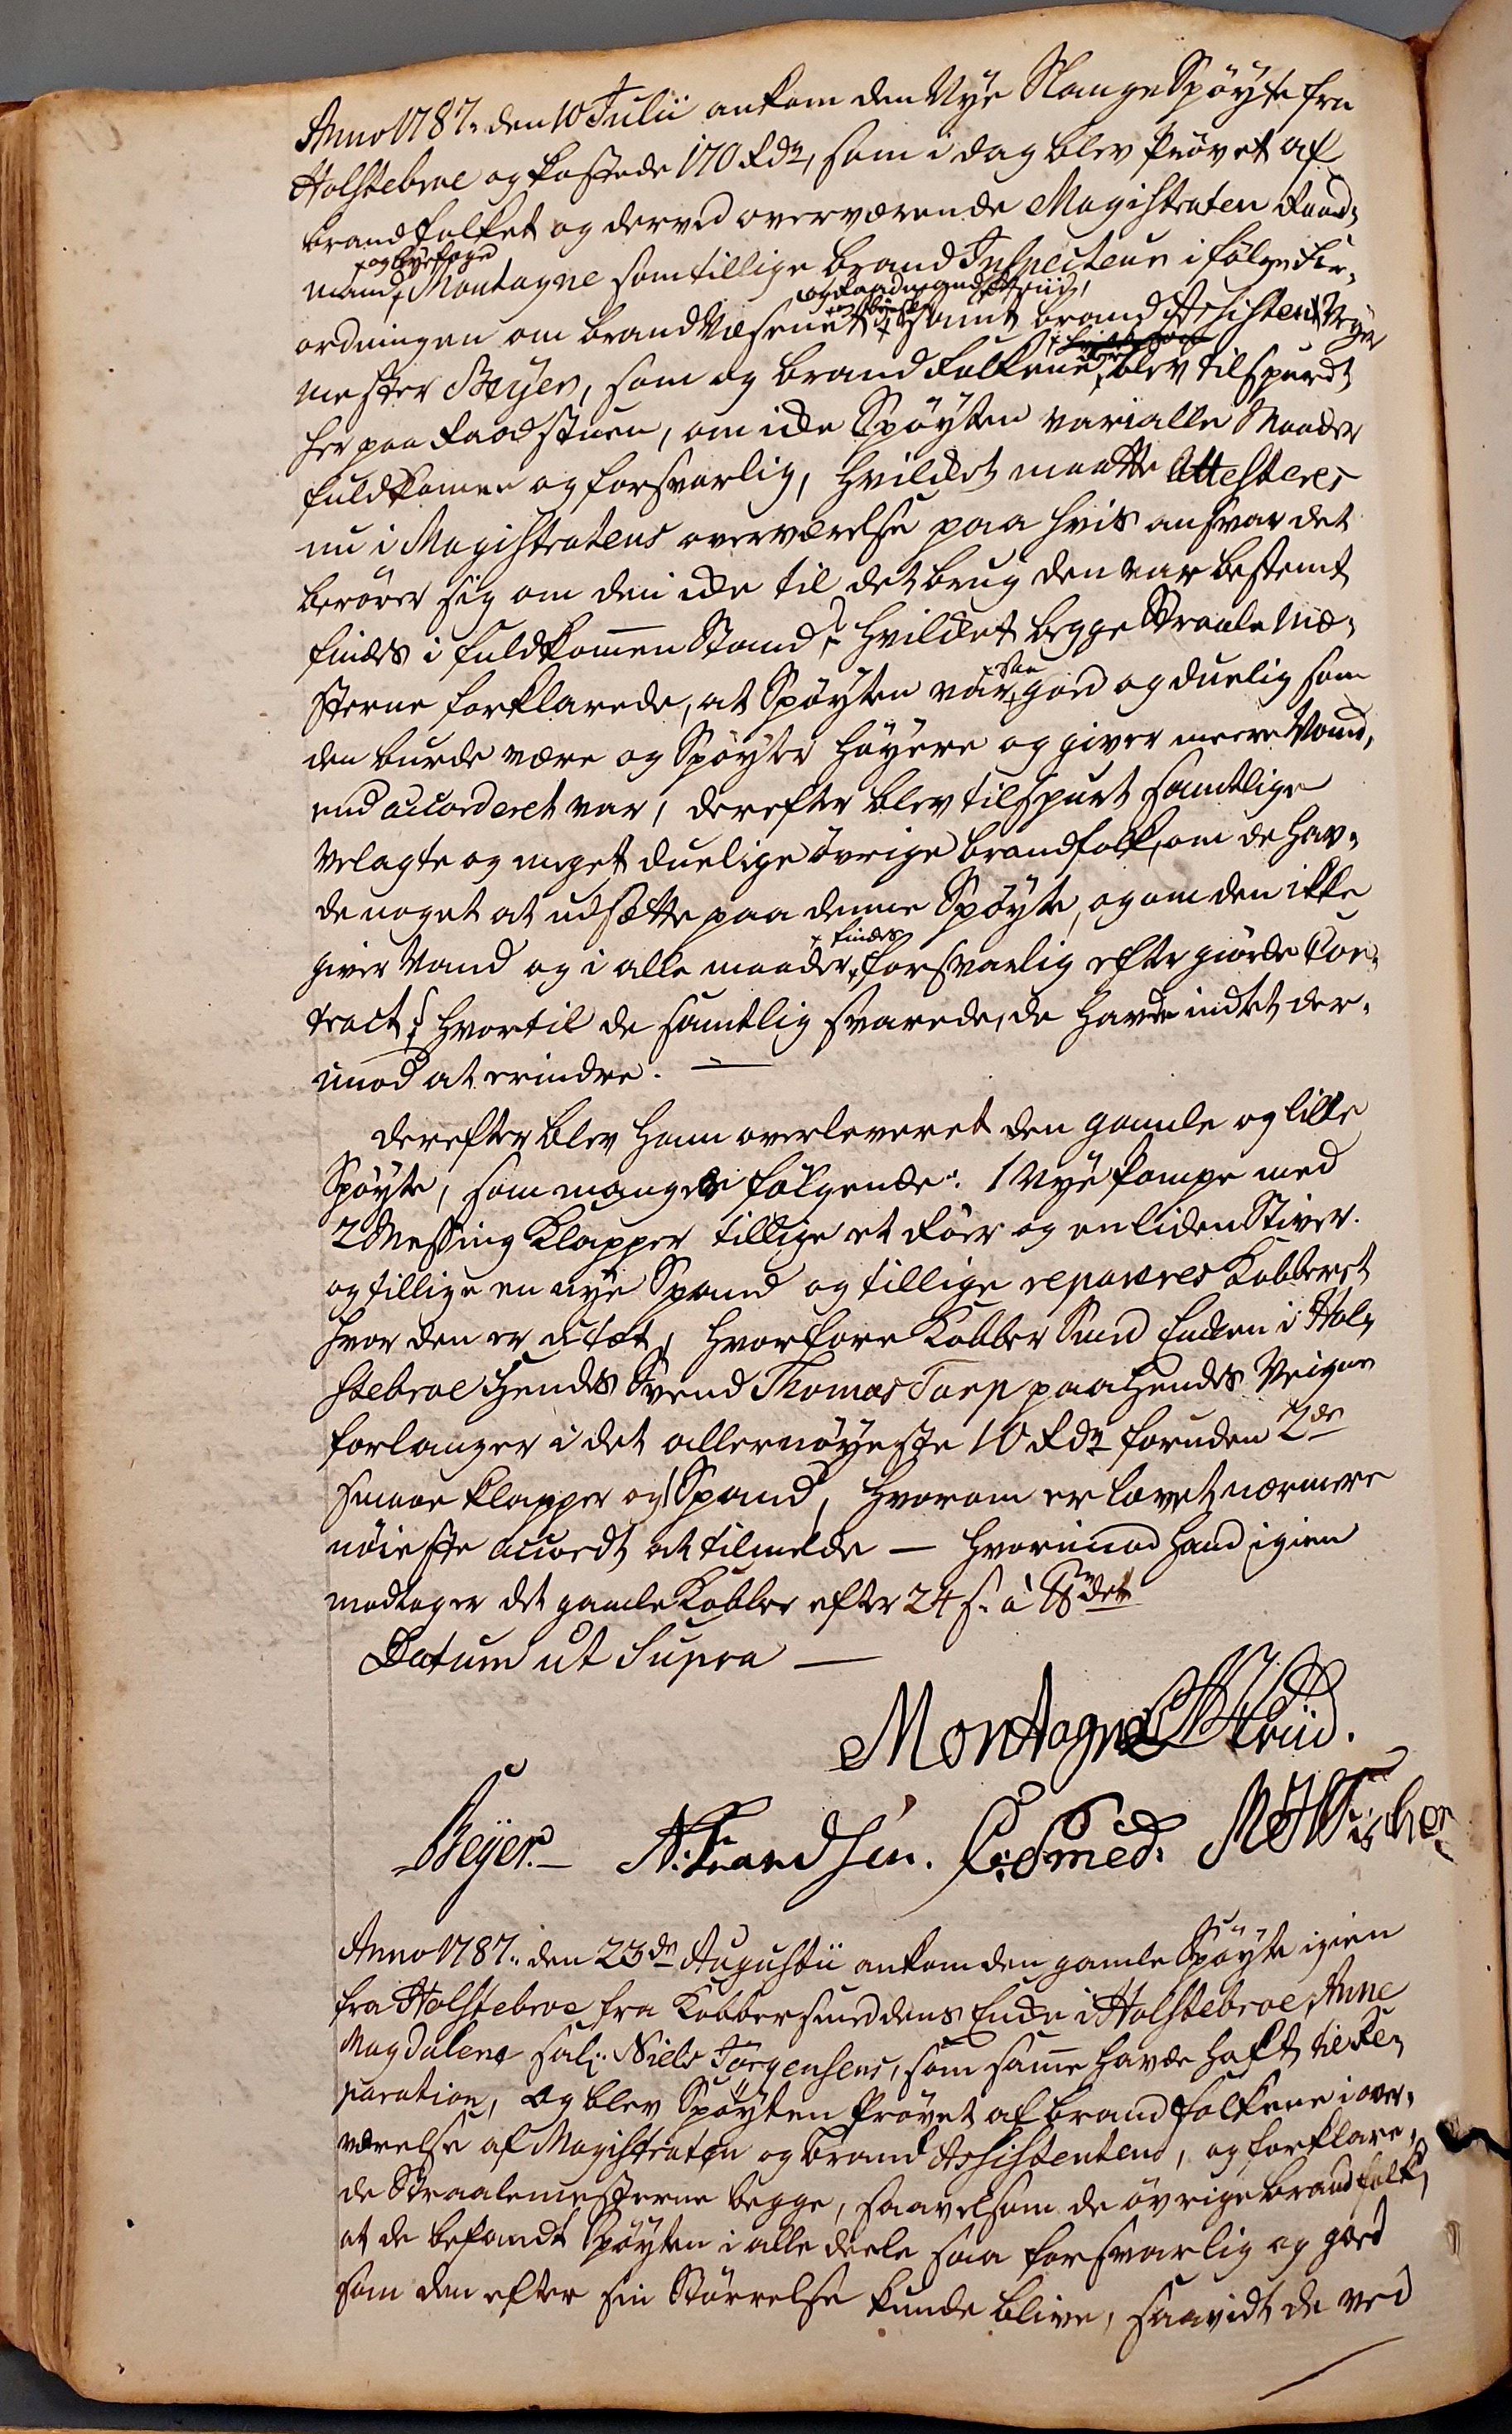 Anno 1787. den 10 Julii ankom den Nÿe Slange Spøÿte fra
Holstebroe og kostede 170 Rdr, som i dag blev prøvet af
brandfolket og derved overværende Magistraten Raad-
mand + Montagne som tillige brand Inspecteur i følge For-
+ og Byefoged
ordningen om brand Væsenet + samt brand Assistent Veÿer
og Raadmand Struid,
mester Beÿer, som og brand folkene blev tilspurdt
her paa Raadstuen, om icke Spøÿten var i alle Maader
fuldkomen og forsvarlig, hvilcket maatte Attesteres
nu i Magistratens overværelse paa hvis ansvar det
berører sig om den icke til det brug den var bestemt
findes i fuldkommen Stand? hvilcket begge Straale Me-
sterne forklarede, at Spøÿten var + god og duelig som
+ saa
den burde være og Spøÿter høÿere og giver meere Vand,
end accorderet var, derefter blev tilspurt samtlige
velagte og meget duelige øvrige brandfolk, om de hav-
de noget at udsætte paa denne Spøÿte, og om den ikke
giver Vand og i alle maader + forsvarlig efter giorde Con-
+ findes
tract? hvortil de samtlig svarede, de havde indtet der-
imod at erindre. —
derefter blev ham overleveret den gamle og lille
Spøÿte, som mangler følgende: 1 Nÿe pompe med
2 Messing Klapper tillige et Røer og en liden Stiver.
og tillige en nÿe Spand og tillige repareres Kobberet
hvor den er utæt, hvorfore Kobber Smed Enken i Hol-
stebroe Hendes Svend Thomas Tarp paa Hendes Veigne
forlanger i det allernøÿeste 10 Rdr foruden 2de
smaae klapper og 1 Spand, hvorom er lovet nærmere
nøieste accordt at tilmelde — hvorimod hand igien
modtager det gamle Kobber efter 24 s. à ℔det
Datum ut Supra —
Montagne Struid.
Beÿer. — N: Frandsen. Smed. Fischer
Anno 1787. den 23de Augustii ankom den gamle Spøÿte igien
fra Holstebroe fra Kobbersmeddens Encke i Holstebroe Anne
Magdalena sal: Niels Jørgensens, som samme havde haft til Re-
paration, og blev Spøÿten prøvet af brand folkene i over-
værelse af Magistraten og brand Assistenten, og forklare-
de Straalemesterne begge, saavelsom de øvrige brandfolk,
at de befandt Spøÿten i alle deele saa forsvarlig og goed
som den efter sin Størrelse kunde blive, saavidt de ved